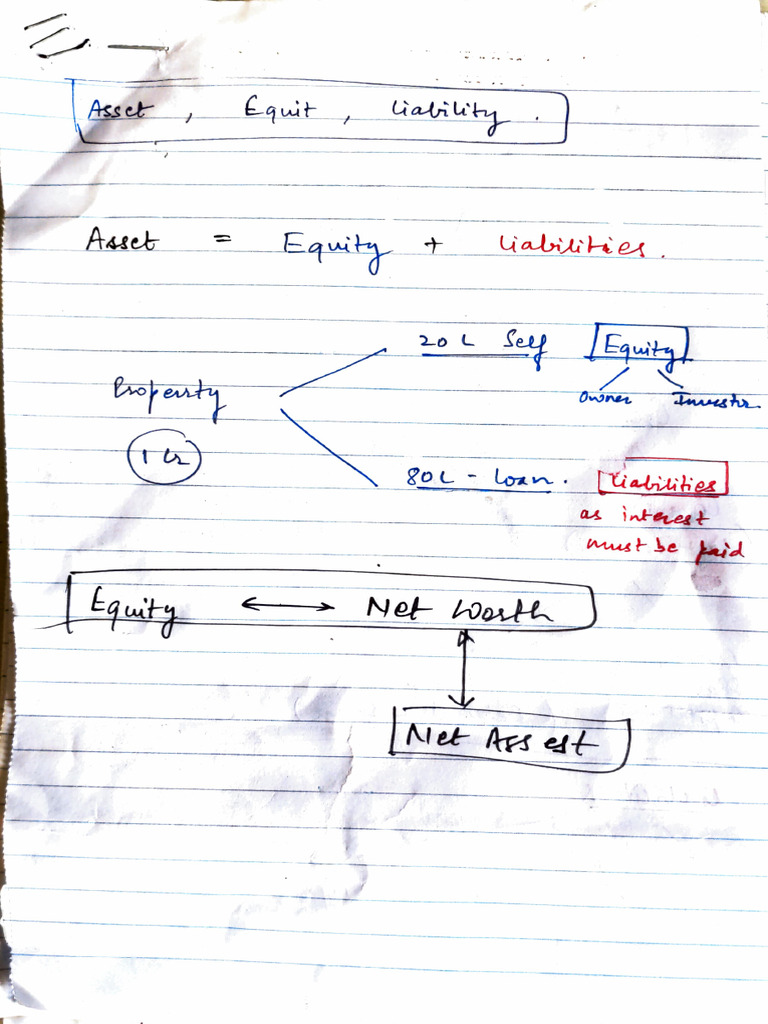 Asset , Equit , Liability .
Asset = Equity + Liabilities.
20 L Self Equity
Owner Investor
Property
1 Cr
80L - Loan. Liabilities
as interest
must be paid
Equity ⟷ Net Worth
Net Assest